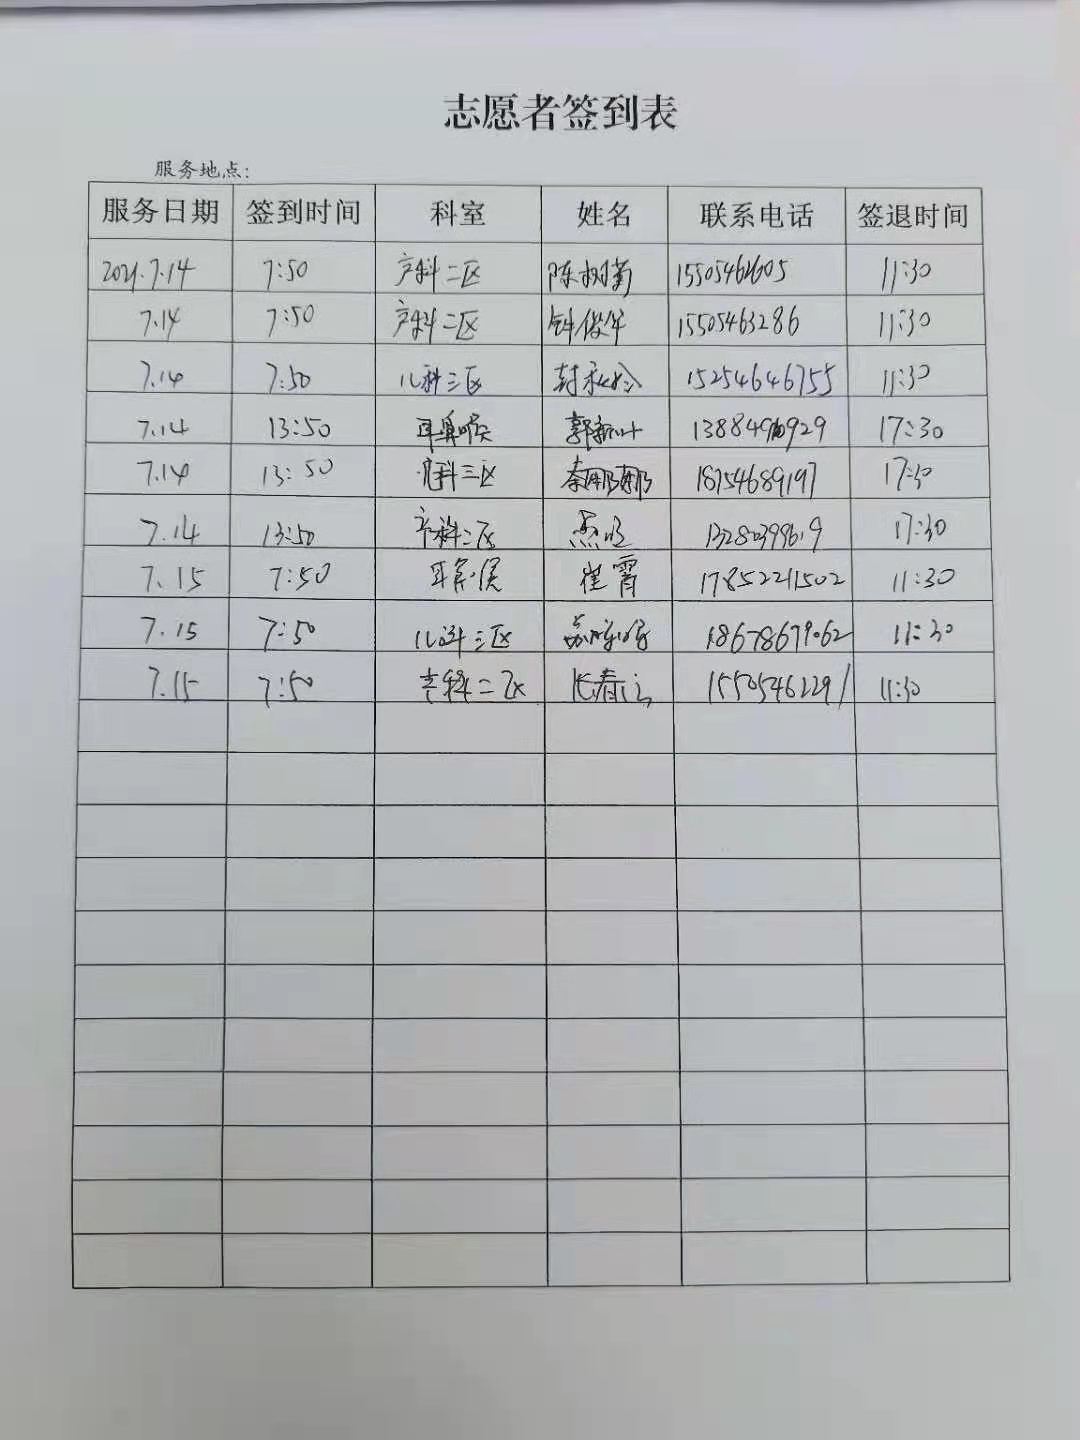 志愿者签到表
服务地点:
服务日期 签到时间 科室 姓名 联系电话 签退时间
2021.7.14 7:50 产科二区 陈树菊 15505462605 11:30
7.14 7:50 产科二区 钟俊华 15505463286 11:30
7.14 7:50 儿科三区 15254646755 11:30
7.14 13:50 耳鼻喉 郭新叶 17:30
7.14 13:50 儿科三区 秦娜娜 18754689197 17:30
7.14 13:50 产科二区 13280399619 17:30
7.15 7:50 耳鼻喉 崔霄 17852211502 11:30
7.15 7:50 儿科三区 18678679062 11:30
7.15 7:50 产科二区 15505462291 11:30